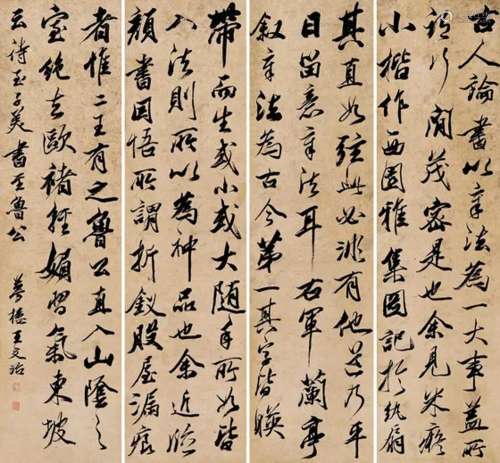 古人論書以章法為一大事蓋所
謂行間茂密是也余見米癡
小楷作西園雅集圖記於紈扇
其直如弦此必非有他道乃平
日留意章法耳右軍蘭亭
敘章法為古今第一其字皆映
帶而生或小或大隨手所如皆
入法則所以為神品也余近臨
顏書因悟所謂折釵股屋漏痕
者惟二王有之魯公直入山陰之
室絕去歐褚輕媚習氣東坡
云詩至子美書至魯公 夢樓王文治